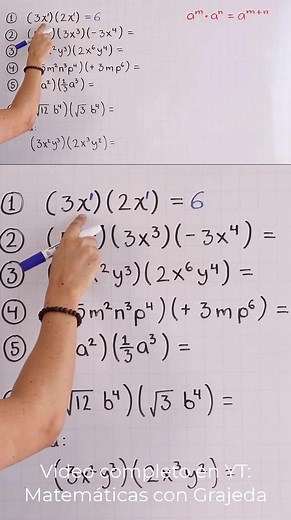 ① (3x¹)(2x¹) = 6
aᵐ · aⁿ = aᵐ⁺ⁿ
② (3x³)(-3x⁴) =
③ ²y³)(2x⁶y⁴) =
④ m²n³p⁴)(+3mp⁶) =
⑤ a²)(⅓a³) =
√12 b⁴)(√3 b⁴) =
:
(3x²y³)(2x³y²) =
① (3x¹)(2x¹) = 6
② ( )(3x³)(-3x⁴) =
③ ²y³)(2x⁶y⁴) =
④ m²n³p⁴)(+3mp⁶) =
⑤ a²)(⅓a³) =
√12 b⁴)(√3 b⁴) =
a:
(3x²y³)(2x³y²) =
Video completo en YT:
Matemáticas con Grajeda